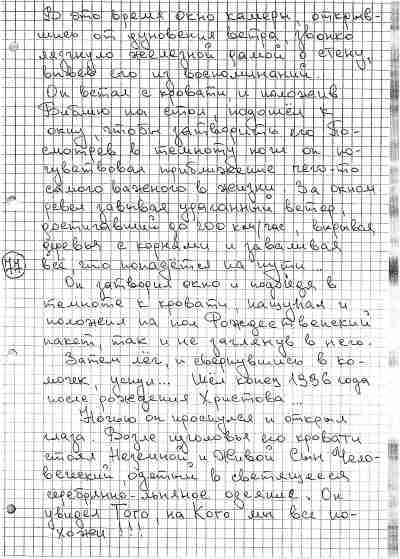 В это время окно камеры, открыв-
шись от дуновения ветра, звонко
лязгнуло железной рамой о стену,
вырвав его из воспоминаний.
Он встал с кровати и положив
Библию на стол, подошёл к
окну, чтобы затворить его. По-
смотрев в темноту ночи он по-
чувствовал приближение чего-то
самого важного в жизни. За окном
ревел завывая ураганный ветер,
достигавший до 200 км/час, вырывая
деревья с корнями и заваливая
всё, что попадётся на пути...
Он затворил окно и подойдя в
темноте к кровати, нащупал и
положил на пол Рождественский
пакет, так и не заглянув в него.
Затем лёг, и свернувшись в ко-
мочек, уснул... Шёл конец 1996 года
после рождения Христова...
Ночью он проснулся и открыл
глаза. Возле изголовья его кровати
стоял Неземной и Живой Сын Чело-
веческий, одетый в светящееся
серебрянно-льняное одеяние. Он
увидел Того, на Кого мы все по-
хожи!!!